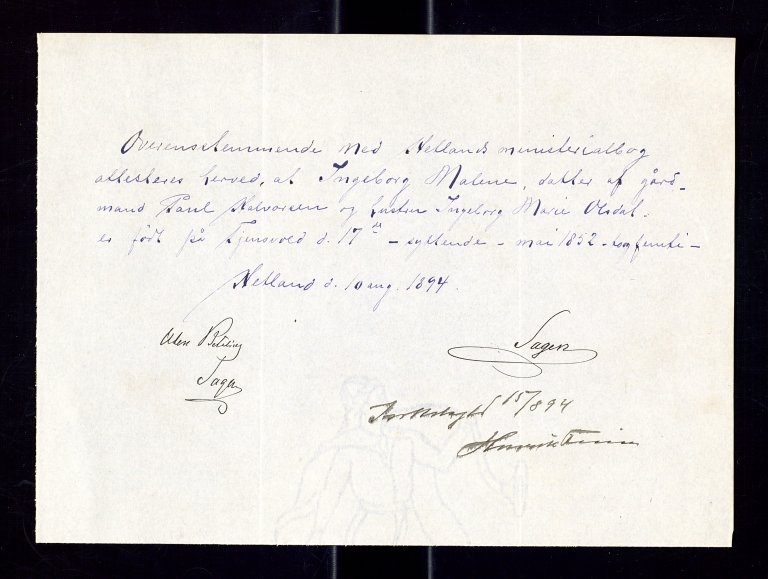 Overensstemmende med Hetlands ministerialbog
attesteres herved, at Ingeborg Malene, datter af gård-
mand Paul Halvorsen og hustru Ingeborg Marie Olsdat.
er født på Tjensvold d. 17de – syttende – mai 1852 – to og femti –
Hetland d. 10 aug. 1894.
Uden Betaling
Sagen
Sagen
15/8 94